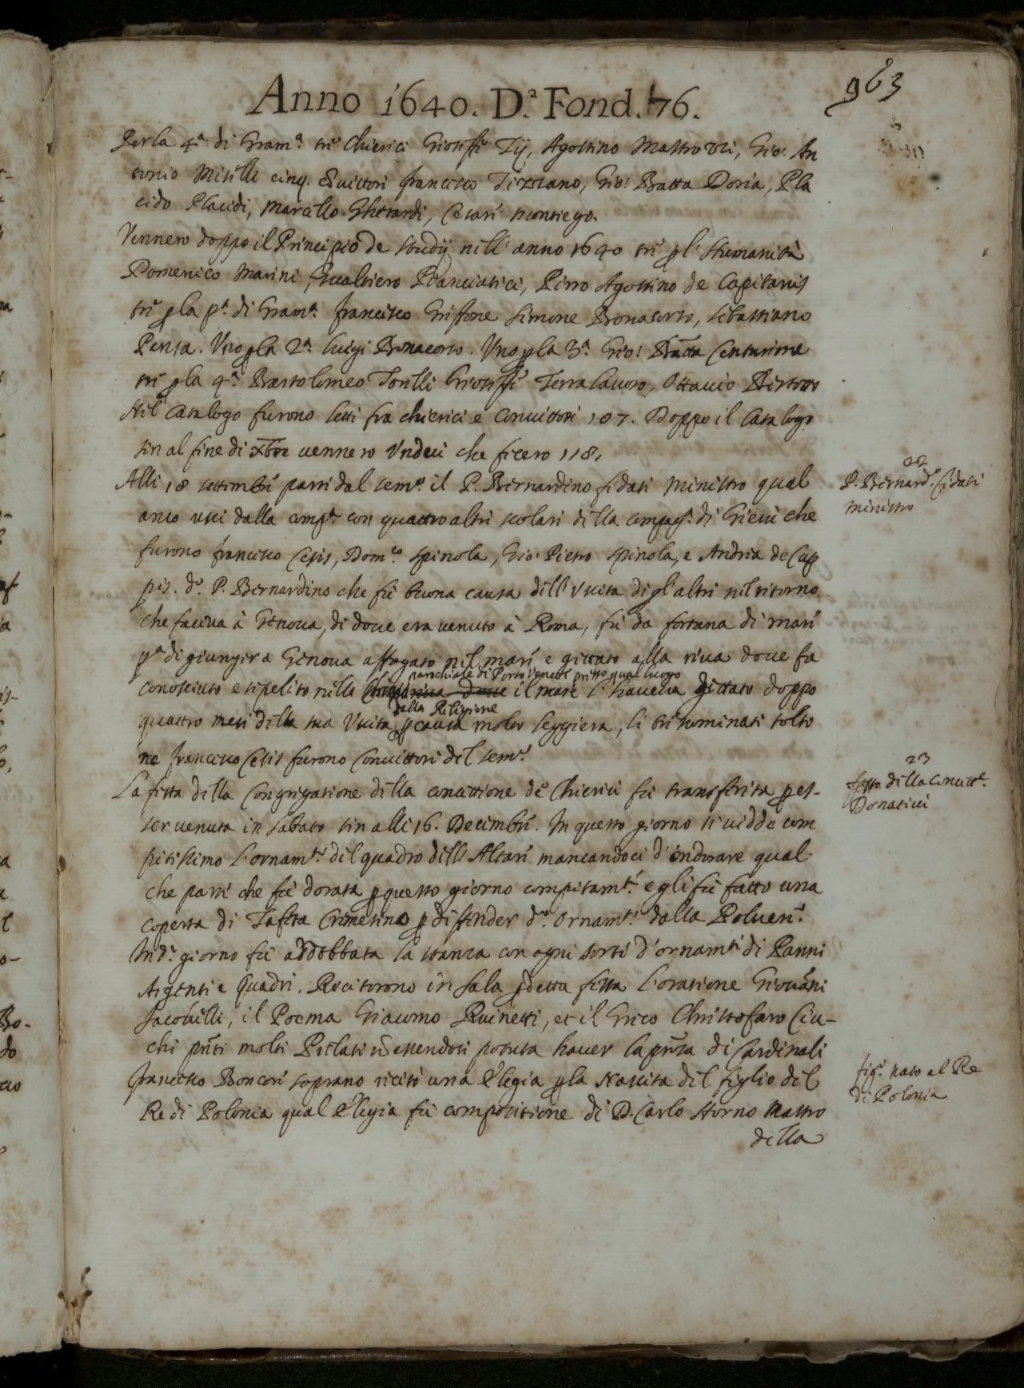 963
Anno 1640. D.ª Fond. 76.
Per la 4.ª di Gram.ª tre Chierici Gioseffe Tij, Agostino Mastrozzi, Gio: An
tonio Miselli cinq. Convittori francesco Tizzano, Gio: Batta Doria, Pla
cido Placidi, Marcello Gherardi, Cesare Montego.
Vennero doppo il Principio de studij nell' anno 1640 tre p l' Humanità
Domenico Marini, Gualtiero Pranciatici, Pirro Agostino de Capitanis
tre p la p.ª di Gram.ª francesco Grifone Simone Bonacorso, Sebastiano
Pensa. Uno p la 2.ª Luigi Bonacorso. Uno p la 3.ª Gio: Batta Centurione
tre p la 4.ª Bartolomeo Torelli Gioseffe Terra lavoro, Ottavio
Nel Catalogo furono letti fra chierici e convittori 107. Doppo il Catalogo
sin al fine di Xbre vennero Undeci che ficero 118.
Alli 18 settembre partì dal sem.º il P. Bernardino fidati Ministro qual
anco uscì dalla comp.ª con quattro altri scolari della compag.ª di Giesù che
furono francesco Cesis, Dom.co Spinola, Gio: Pietro Spinola, e Andrea de
pis. d.º P. Bernardino che fù buona causa dell' Uscita degl' altri nel ritorno
che faceva à Genova, di dove era venuto à Roma, fù da fortuna di mare
p.ª di giungere a Genova affogato nel mare e gittato alla riva dove fu
parochiale di Porto Venere presso qual luogo
conosciuto e sepelito nella il mare l' haveva gittato doppo
dalla Religione
quattro mesi della sua Uscita p causa molto leggiera, li tre nominati tolto
ne francesco Cesis furono Convittori del sem.º
La festa della Congregatione della concettione de Chierici fù transferita p es-
ser venuta in sabato sin alli 16. Decembre. In questo giorno si vidde com
pitissimo l' ornam.to del quadro dell' Altare mancandoci d' indorare qual
che parte che fù dorata p questo giorno compitam.te e gli fù fatto una
coperta di Taffta Cremesino p diffender d.º Ornam.to dalla Polvere.
In d.º giorno fù addobbata la stanza con ogni sorte d' ornam.ti di Panni
Argenti e Quadri. Recitorono in sala p detta festa l' oratione Giovanni
Jacobilli, il Poema Giacomo Ruinetti, et il Greco Christofaro Ciu-
chi pnti molti Prelati nō essendosi potuta haver la pnza di Cardinali
francesco Boncore soprano recitò una Elegia p la Nascita del figlio del
Re di Polonia qual Elegia fù compositione di D. Carlo Storno Mastro
della
22
P. Bernard.º fidati
Ministro
23
festa della Concett.e
Donativi
fig.º nato al Re
di Polonia